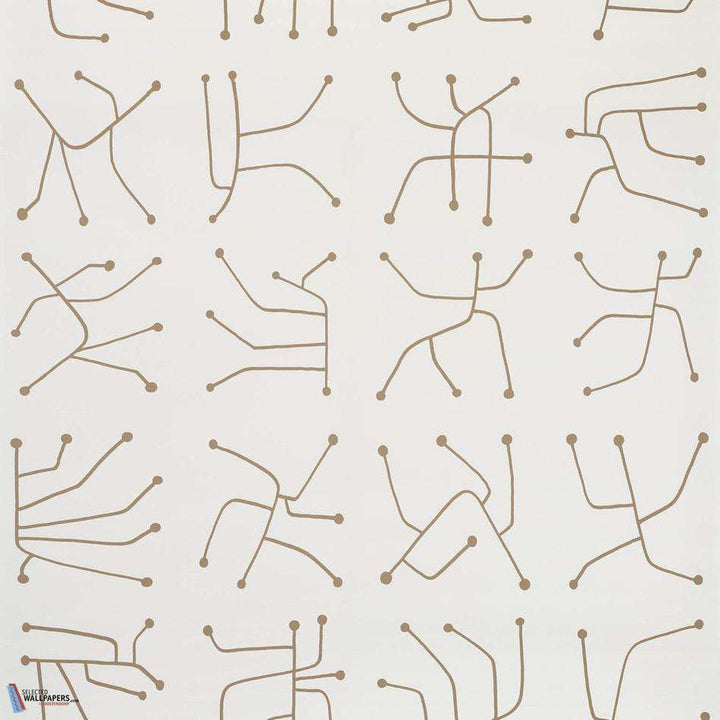 SELECTED
WALLPAPERS.com